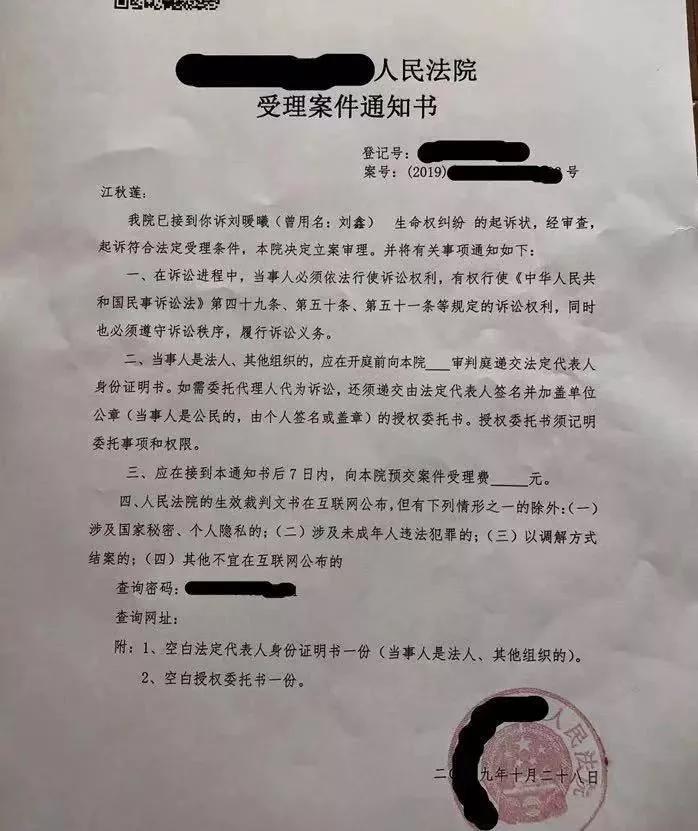 人民法院
受理案件通知书
登记号:
案号:(2019) 号
江秋莲:
我院已接到你诉刘暖曦(曾用名:刘鑫) 生命权纠纷 的起诉状,经审查,
起诉符合法定受理条件,本院决定立案审理。并将有关事项通知如下:
一、在诉讼进程中,当事人必须依法行使诉讼权利,有权行使《中华人民共
和国民事诉讼法》第四十九条、第五十条、第五十一条等规定的诉讼权利,同时
也必须遵守诉讼秩序,履行诉讼义务。
二、当事人是法人、其他组织的,应在开庭前向本院___审判庭递交法定代表人
身份证明书。如需委托代理人代为诉讼,还须递交由法定代表人签名并加盖单位
公章(当事人是公民的,由个人签名或盖章)的授权委托书。授权委托书须记明
委托事项和权限。
三、应在接到本通知书后7日内,向本院预交案件受理费_____元。
四、人民法院的生效裁判文书在互联网公布,但有下列情形之一的除外:(一)
涉及国家秘密、个人隐私的;(二)涉及未成年人违法犯罪的;(三)以调解方式
结案的;(四)其他不宜在互联网公布的
查询密码:
查询网址:
附:1、空白法定代表人身份证明书一份(当事人是法人、其他组织的)。
2、空白授权委托书一份。
人民法院
二 九年十月二十八日